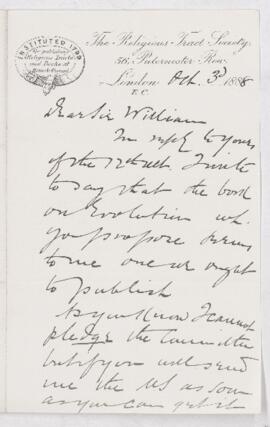 INSTITUTED 1799
For publishing
Religious Tracts
and Books at
The Religious Tract Society,
56, Paternoster Row,
London Oct. 3d 1888
E.C.
Dear Sir William
In reply to yours
of the 12th ult. I write
to say that the book
on Evolution wh.
you propose seems
to me one we ought
to publish
As you know I cannot
pledge the Committee
but if you will send
me the MS as soon
as you can get it